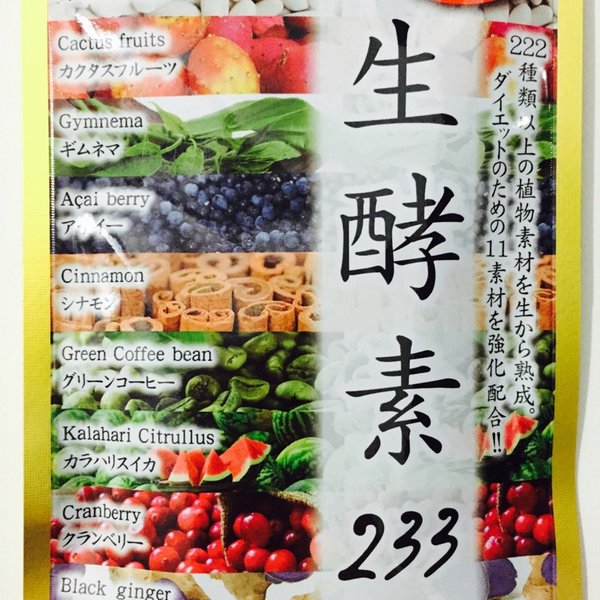 Cactus fruits
カクタスフルーツ
Gymnema
ギムネマ
Açai berry
アサイー
Cinnamon
シナモン
Green Coffee bean
グリーンコーヒー
Kalahari Citrullus
カラハリスイカ
Cranberry
クランベリー
Black ginger
生酵素
233
222種類以上の植物素材を生から熟成。
ダイエットのための11素材を強化配合!!